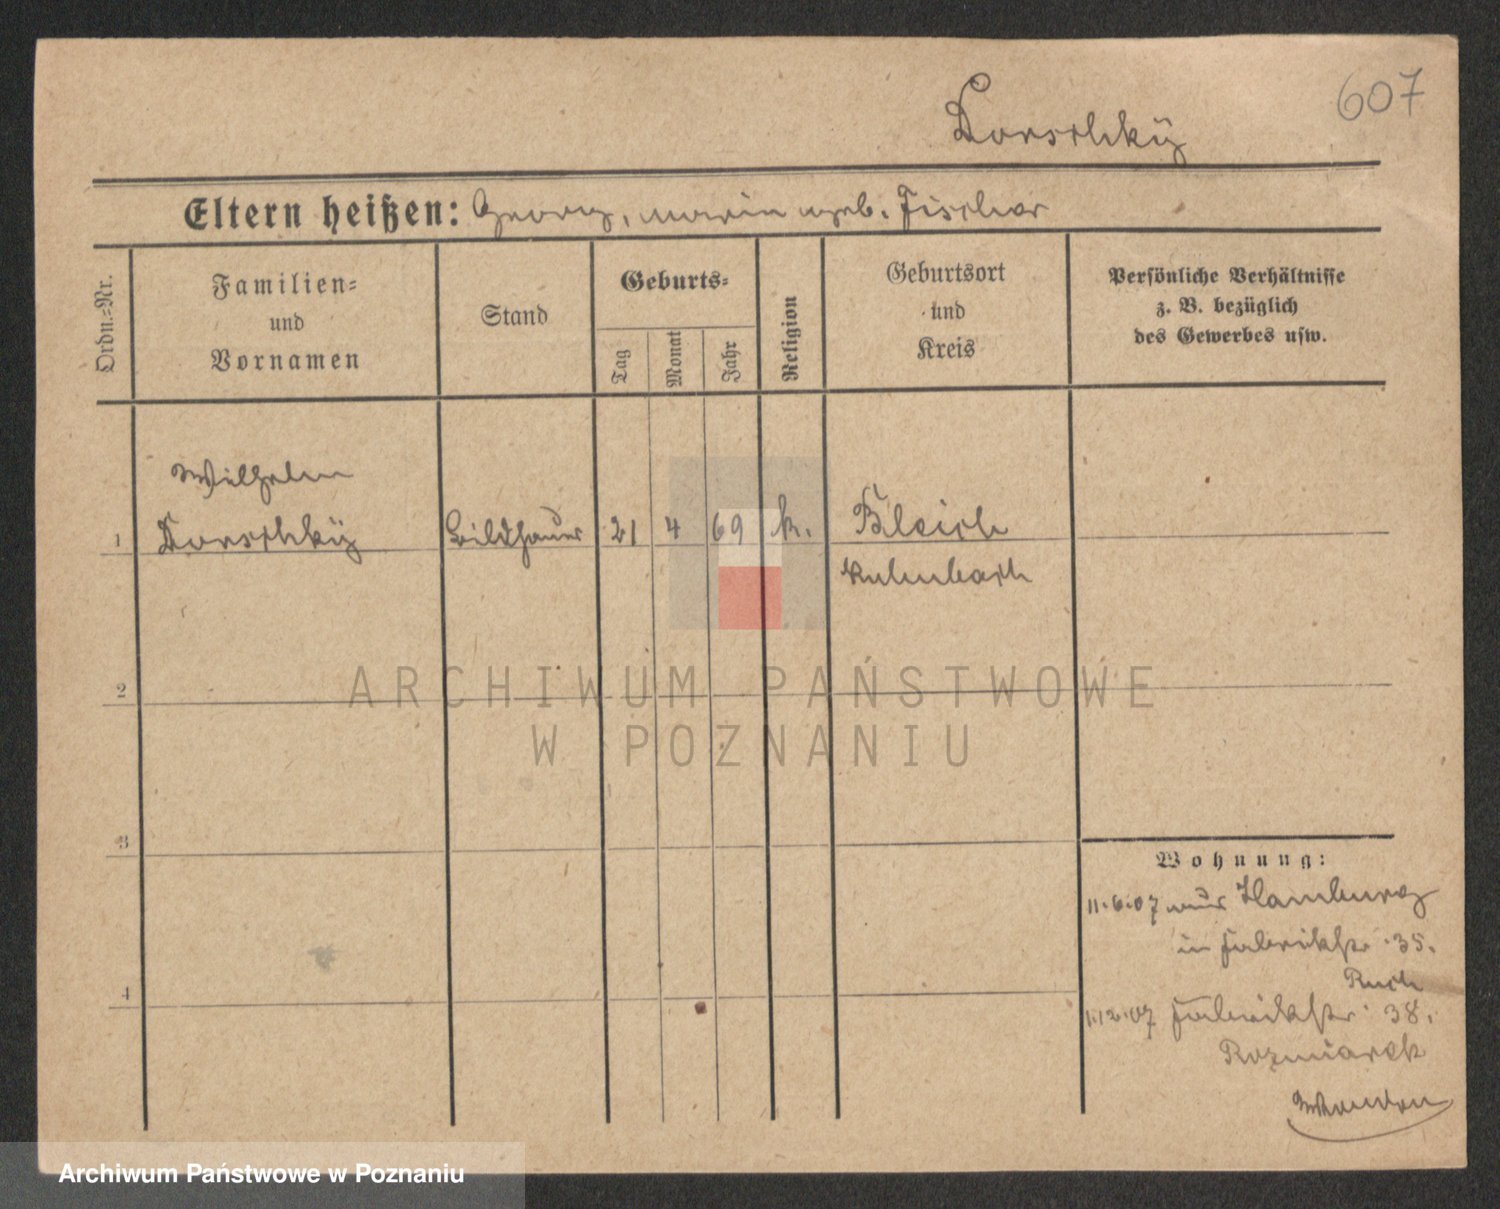 607
Dorschky
Eltern heißen: Georg, Maria geb. Fischer
Ordn.=Nr.
Familien=
und
Vornamen
Stand
Geburts=
Tag
Monat
Jahr
Religion
Geburtsort
und
Kreis
Persönliche Verhältnisse
z. B. bezüglich
des Gewerbes usw.
Wilhelm
1 Dorschky Bildhauer 21 4 69 k. Bleich
Kulmbach
2
ARCHIWUM PAŃSTWOWE
W POZNANIU
3
Wohnung:
11.6.07 aus Hamburg
in Fabrikstr. 35.
4
Ruch
1.12.07 Fabrikstr. 38.
Rozmiarek
Archiwum Państwowe w Poznaniu